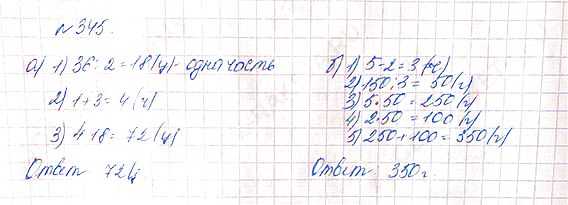 № 345.
а) 1) 36 : 2 = 18 (ц) - одна часть
2) 1 + 3 = 4 (ч)
3) 4 · 18 = 72 (ц)
Ответ: 72 ц
б) 1) 5 - 2 = 3 (ч)
2) 150 : 3 = 50 (г)
3) 5 · 50 = 250 (г)
4) 2 · 50 = 100 (г)
5) 250 + 100 = 350 (г)
Ответ: 350 г.